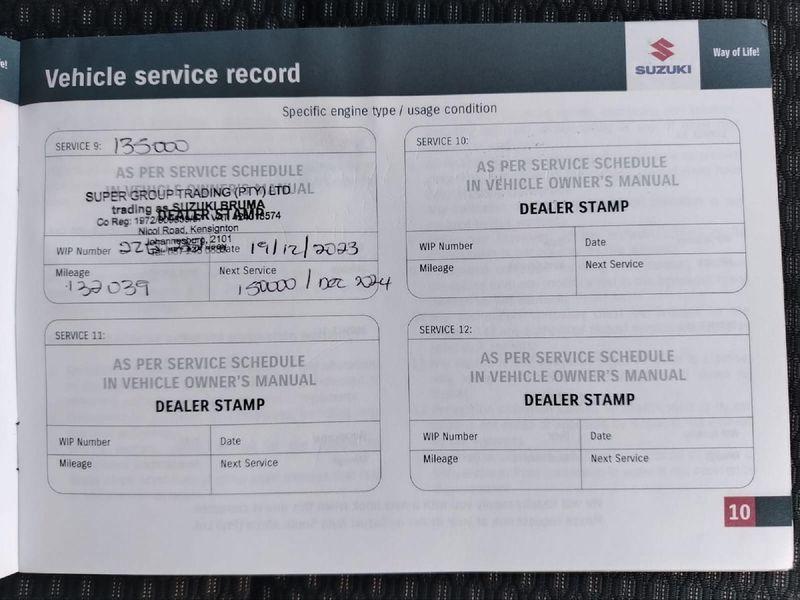 e!
Vehicle service record
SUZUKI
Way of Life!
Specific engine type / usage condition
SERVICE 9: 135000
AS PER SERVICE SCHEDULE
IN VEHICLE OWNER'S MANUAL
SUPER GROUP TRADING (PTY) LTD
trading as SUZUKI BRUMA
DEALER STAMP
Co Reg: 1972/
Nicol Road, Kensignton
Johannesburg, 2101
WIP Number
Date 19/12/2023
Mileage
132039
Next Service
150000 / Dec 2024
SERVICE 10:
AS PER SERVICE SCHEDULE
IN VEHICLE OWNER'S MANUAL
DEALER STAMP
WIP Number
Date
Mileage
Next Service
SERVICE 11:
AS PER SERVICE SCHEDULE
IN VEHICLE OWNER'S MANUAL
DEALER STAMP
WIP Number
Date
Mileage
Next Service
SERVICE 12:
AS PER SERVICE SCHEDULE
IN VEHICLE OWNER'S MANUAL
DEALER STAMP
WIP Number
Date
Mileage
Next Service
10